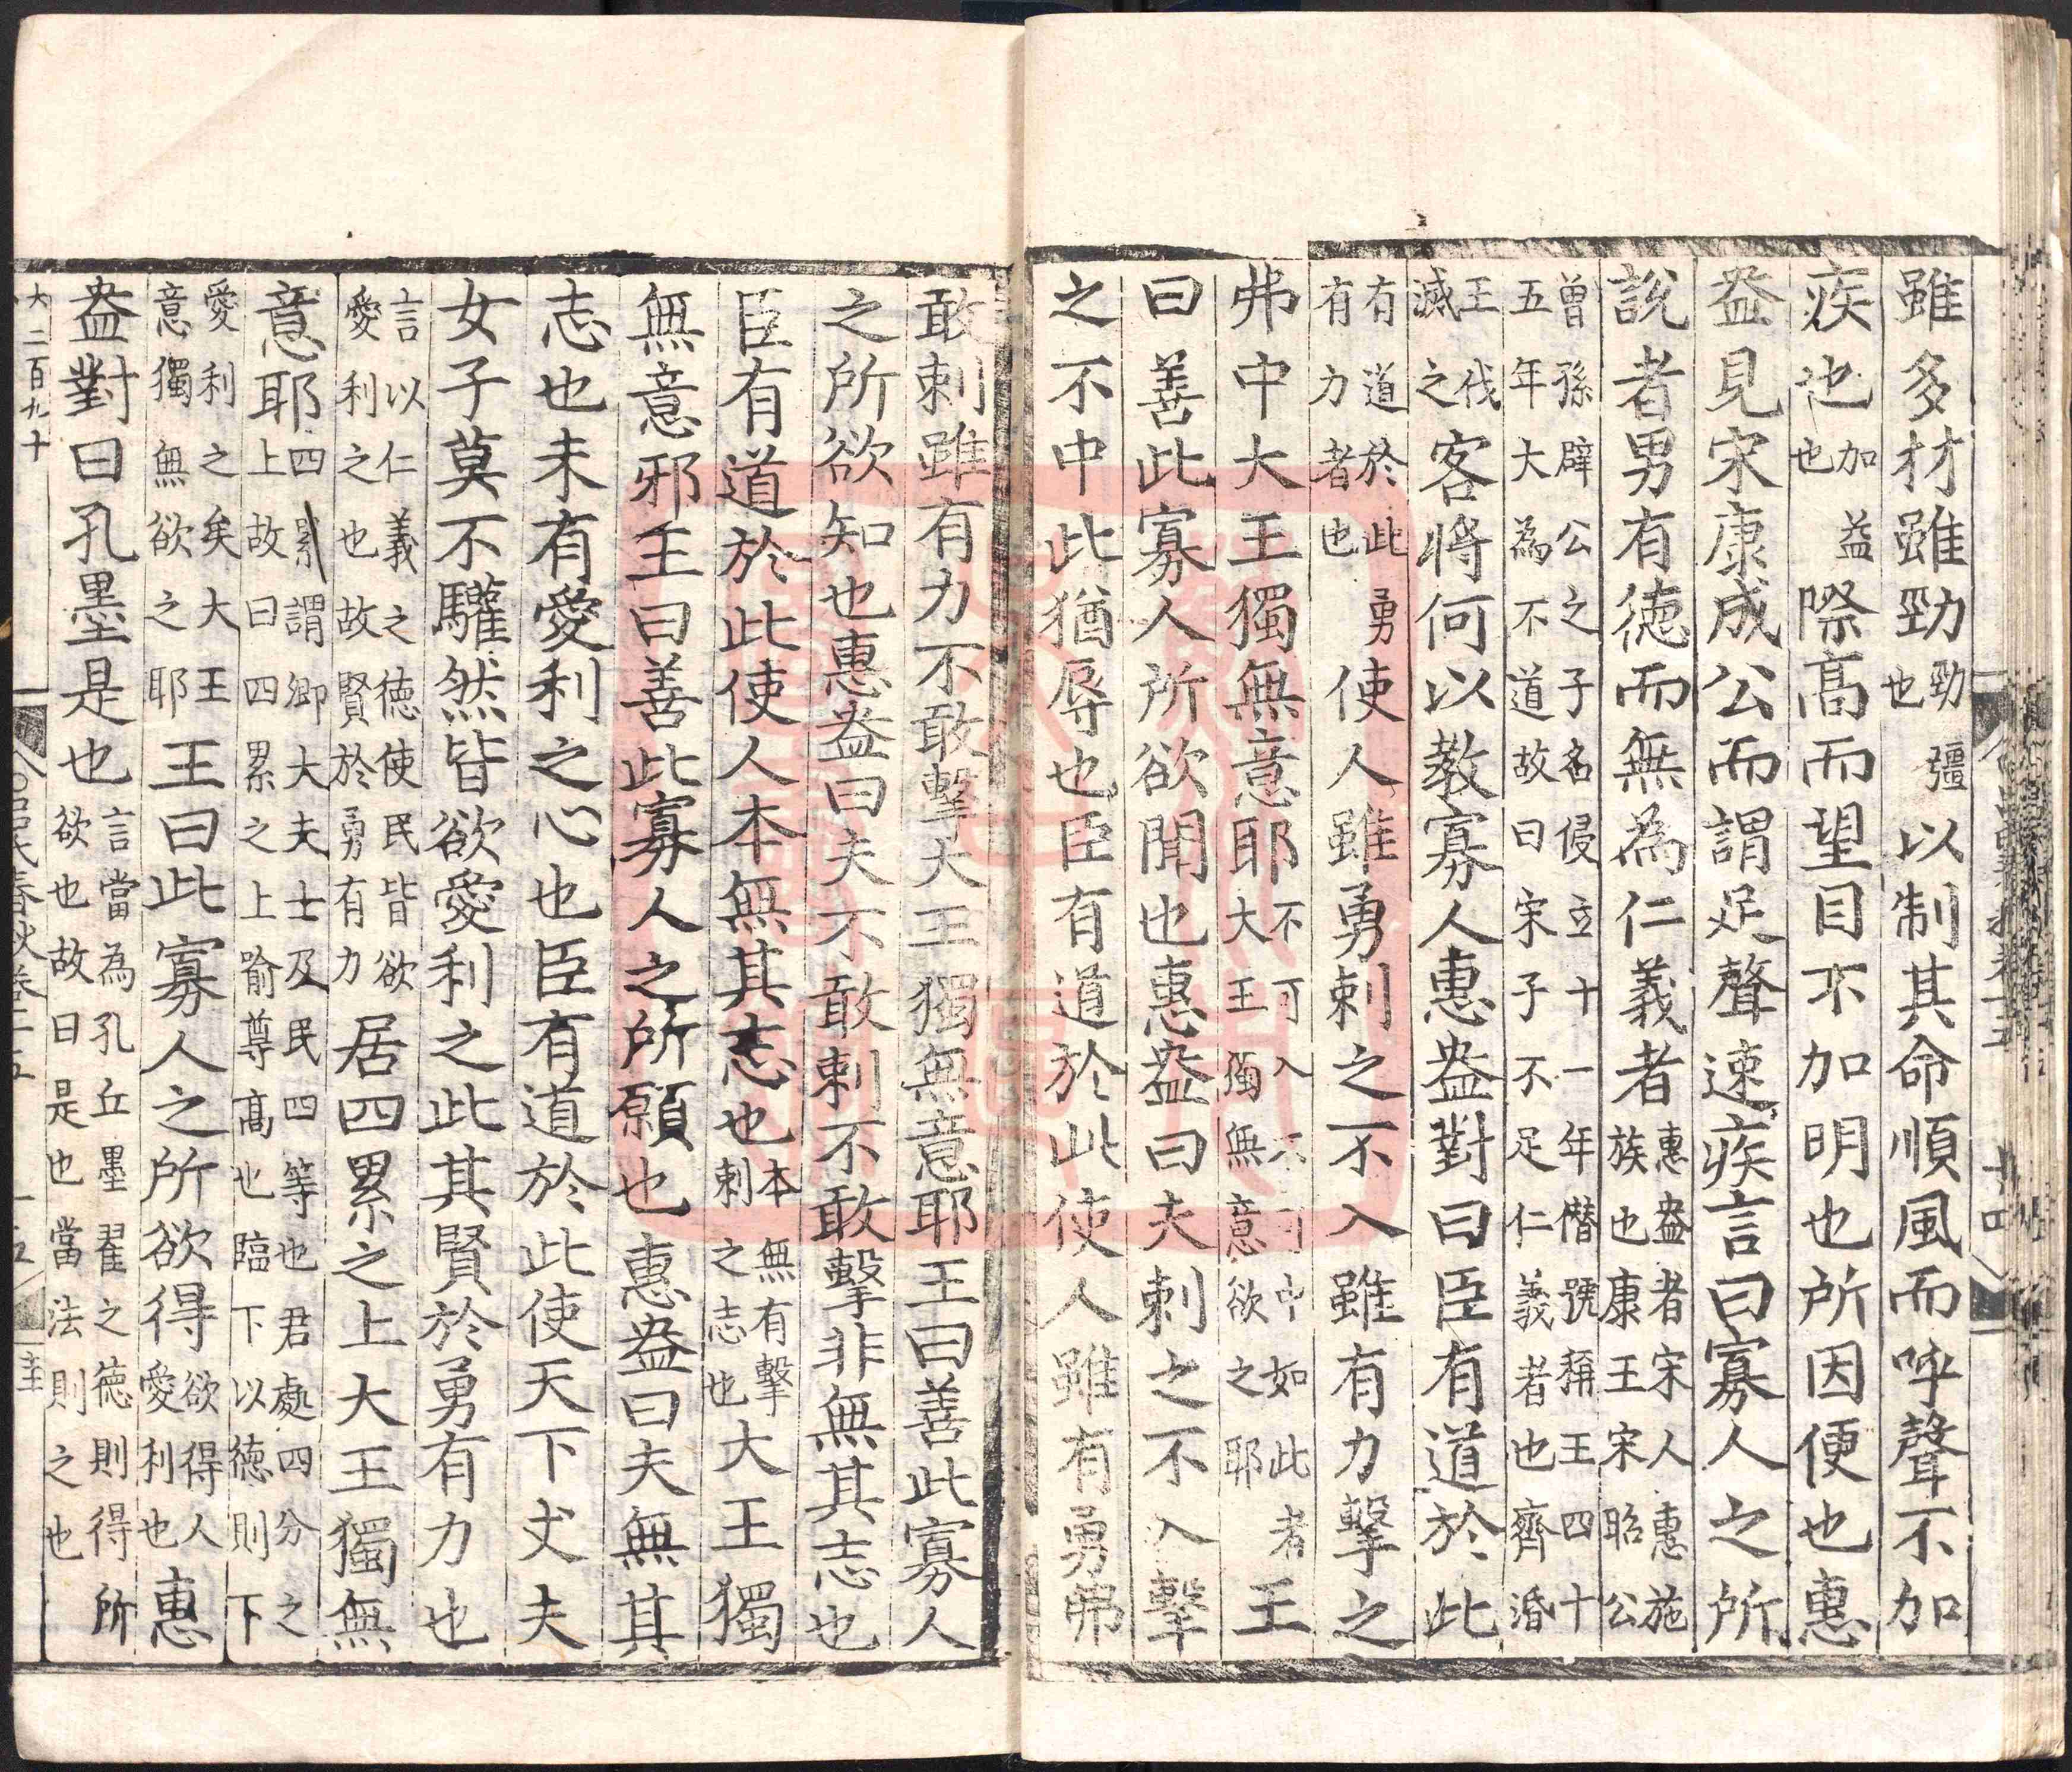 雖多材雖勁勁彊也以制其命順風而呼聲不加
疾也加益也際高而望目不加明也所因便也惠
盎見宋康成公而謂足聲速疾言曰寡人之所
說者男有徳而無為仁義者惠盎者宋人惠施族也康王宋昭公
曾孫辟公之子名侵立十一年僭號稱王四十五年大為不道故曰宋子不足仁義者也齊湣
王伐滅之客將何以教寡人惠盎對曰臣有道於此
有道於此勇有力者也使人雖勇刺之不入雖有力擊之
弗中大王獨無意耶不可入不可中如此者大王獨無意欲之耶王
曰善此寡人所欲聞也惠盎曰夫刺之不入擊
之不中此猶辱也臣有道於此使人雖有勇弗
敢刺雖有力不敢擊大王獨無意耶王曰善此寡人
之所欲知也惠盎曰夫不敢刺不敢擊非無其志也
臣有道於此使人本無其志也本無有擊刺之志也大王獨
無意邪王曰善此寡人之所願也惠盎曰夫無其
志也未有愛利之心也臣有道於此使天下丈夫
女子莫不驩然皆欲愛利之此其賢於勇有力也
言以仁義之徳使民皆欲愛利之也故賢於勇有力居四累之上大王獨無
意耶四累謂卿大夫士及民四等也君處四分之上故曰四累之上喻尊高也臨下以徳則下
愛利之矣大王意獨無欲之耶王曰此寡人之所欲得欲得人愛利也惠
盎對曰孔墨是也言當為孔丘墨翟之徳則得所欲也故曰是也當法則之也
大二百九十
呂氏春秋卷十五 十五 圭